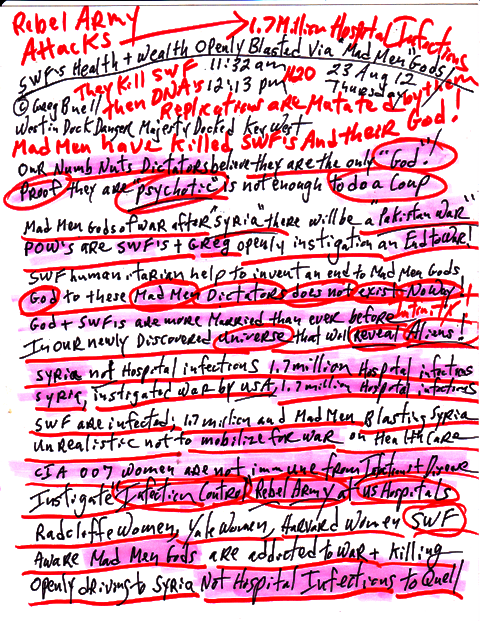 Rebel Army
Attacks → 1.7 Million Hospital Infections
SWF's Health + Wealth Openly Blasted Via "Mad Men" Gods
They Kill SWF 11:32 am H2O 23 Aug 12
© Greg Buell then DNA's 12:13 pm Thursday by them
Replications are Mutated
West in Dock Danger Majesty Docked Key West
Mad Men have Killed, SWF's And their God!
Our Numb Nuts Dictators believe they are the only "God"!
Proof they are "psychotic" is not enough to do a Coup
Mad Men Gods of war after "Syria" there will be a "Pakistan War"
POW's are SWF's + Greg openly instigation an End to War!
SWF humanitarian help to invent an end to Mad Men Gods
God to these Mad Men Dictators does not exist - No Way!
God + SWF's are more Married than ever before
In our newly Discovered Universe that will reveal Aliens!
Syria not Hospital infections 1.7 million Hospital infections
Syria, instigated war by USA, 1.7 million Hospital infections
SWF are infected; 1.7 million and Mad Men Blasting Syria
Unrealistic not to mobilize for war on Health Care
CIA 007 women are not immune from Infections + Disease
Instigate "Infection Control" Rebel Army at US Hospitals
Radcloffe Women, Yale Women, Harvard Women SWF
Aware Mad Men Gods are addicted to war + killing
Openly driving to Syria Not Hospital Infections to Quell